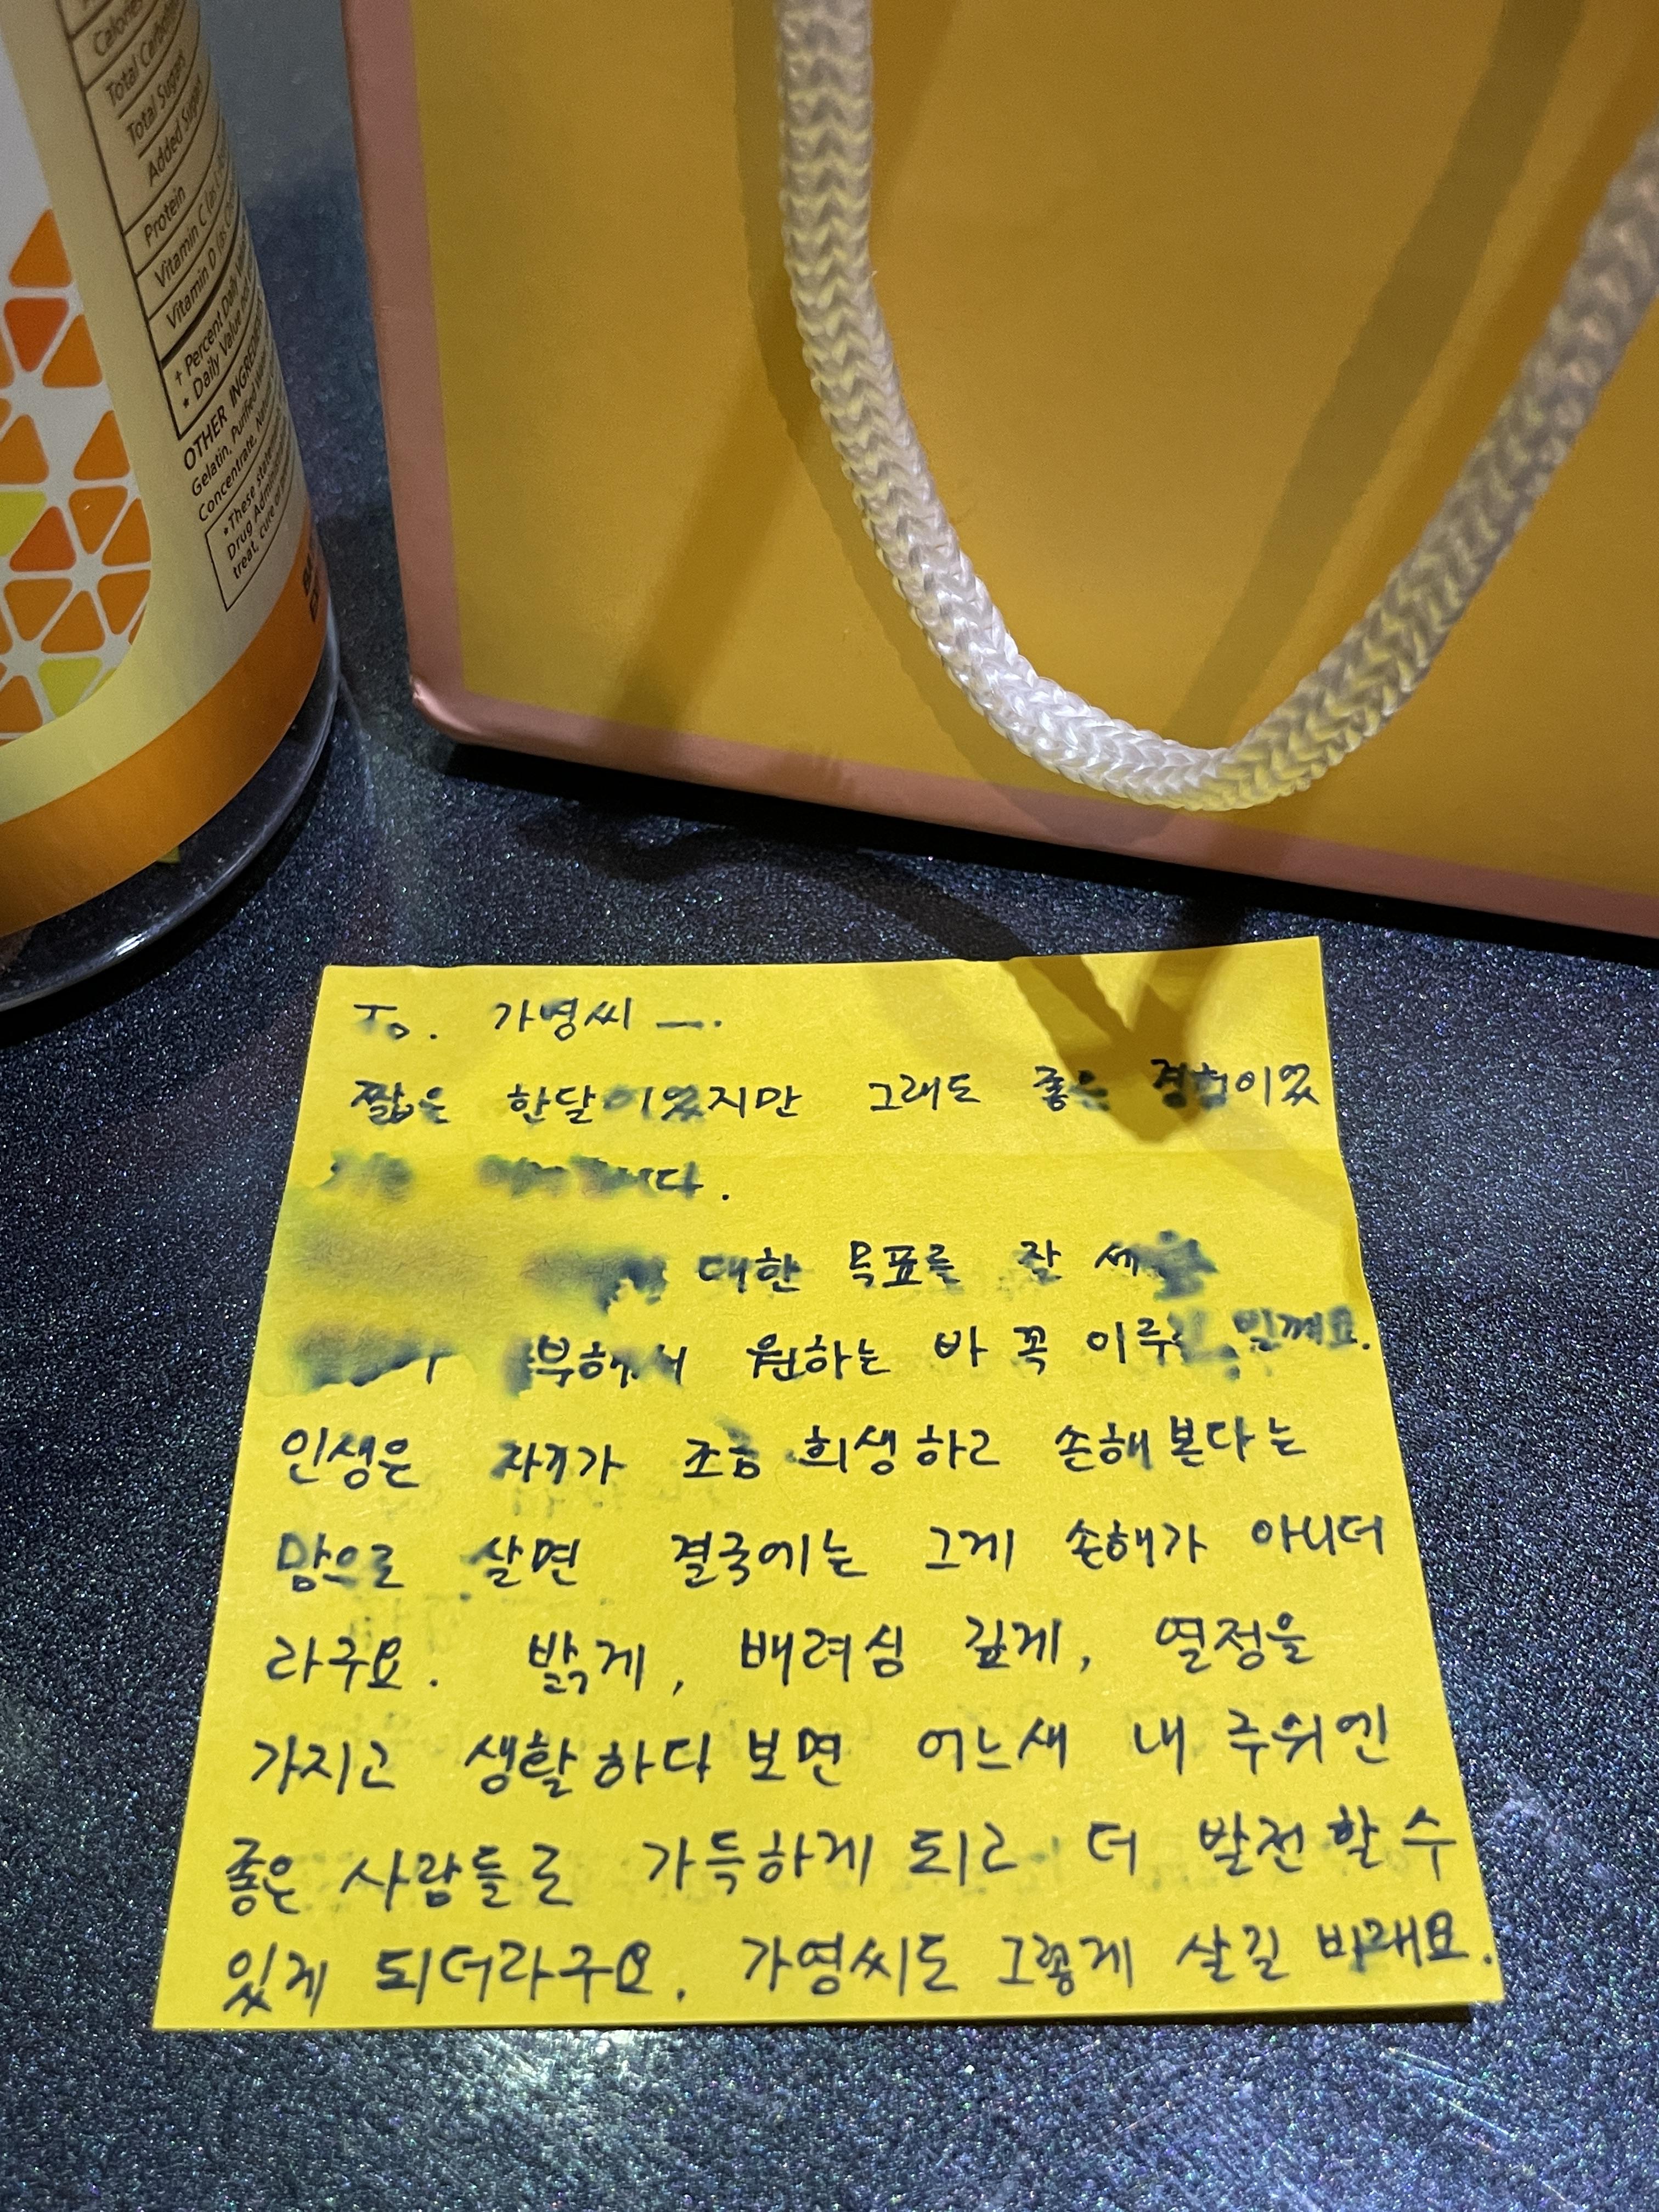 Calories
Total Carbohy
Total Sugars
Added Sugars
Protein
Vitamin C (as
Vitamin D (as
† Percent Daily
* Daily Value not
OTHER INGREDIENTS
Gelatin, Purified Water,
Concentrate,
*These
Drug Adminis
treat, cure or
To. 가영씨 —.
짧은 한달이었지만 그래도 좋은 경험이었
대한 목표를 잘
원하는 바 꼭
인생은 자기가 조금 희생하고 손해본다는
맘으로 살면 결국에는 그게 손해가 아니더
라구요. 밝게, 배려심 깊게, 열정을
가지고 생활하다보면 어느새 내 주위엔
좋은 사람들로 가득하게 되고 더 발전할 수
있게 되더라구요. 가영씨도 그렇게 살길 바래요.